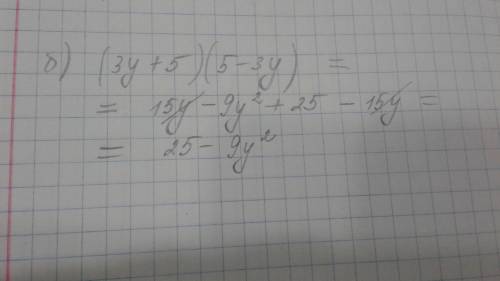 б) (3y + 5)(5 - 3y) =
= 15y - 9y² + 25 - 15y =
= 25 - 9y²